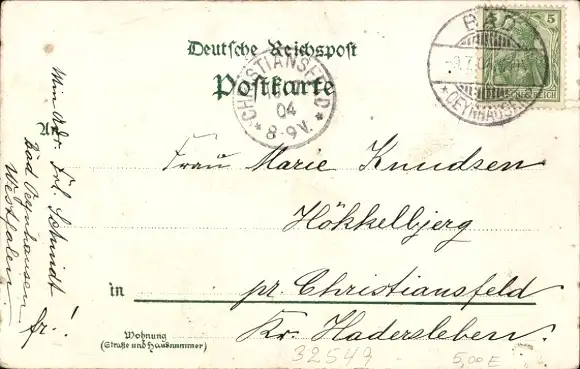 Deutsche Reichspost
Postkarte
An
Frau Marie Knudsen
Hökkelbjerg
in pr. Christiansfeld
Kr. Hadersleben.
Wohnung
(Straße und Hausnummer)
Min Adr. Frl. Schmidt
Bad Oeynhausen
Westfalen
fr.!
CHRISTIANSFELD
04
* 8-9V. *
BAD
* OEYNHAUSEN
5
32549
5,00 E